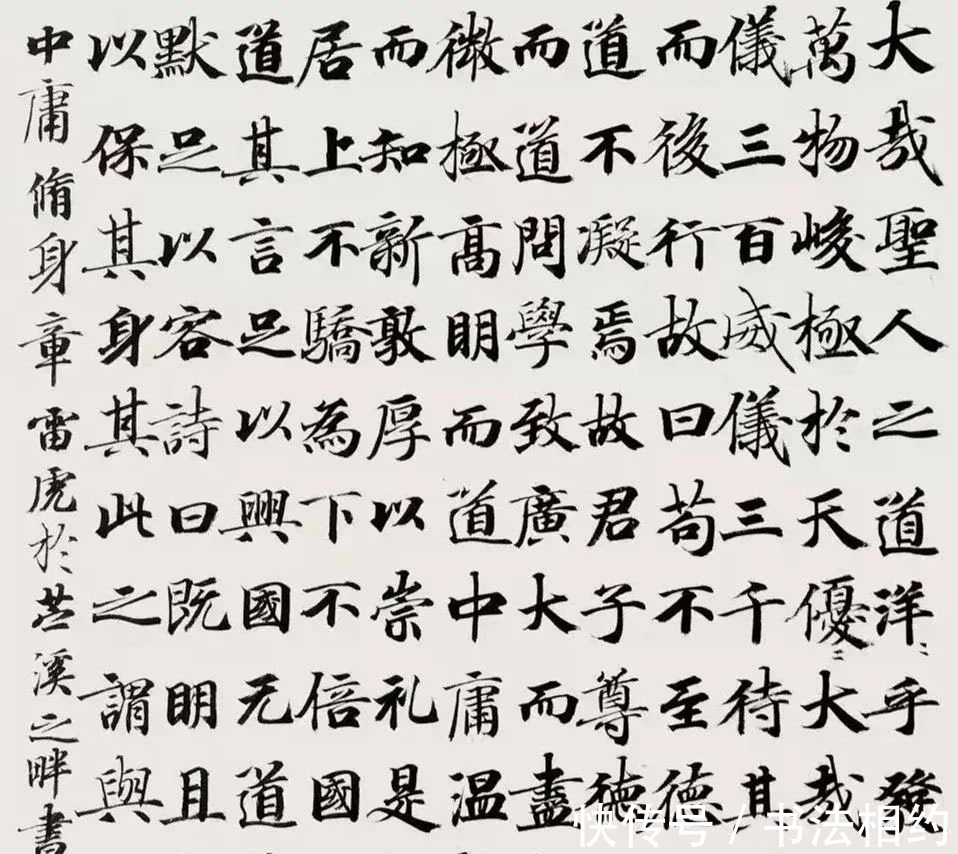 大哉聖人之道洋〻乎發
萬物峻極於天優〻大哉
儀三百威儀三千待其
而後行故曰苟不至德
道不凝焉故君子尊德
而道問學致廣大而盡
微極高明而道中庸温
而知新敦厚以崇礼是
居上不驕為下不倍國
道其言足以興國无道
默足以容詩曰既明且
以保其身其此之謂與
中庸脩身章雷虎於溪之畔書
快传号 / 书法相约